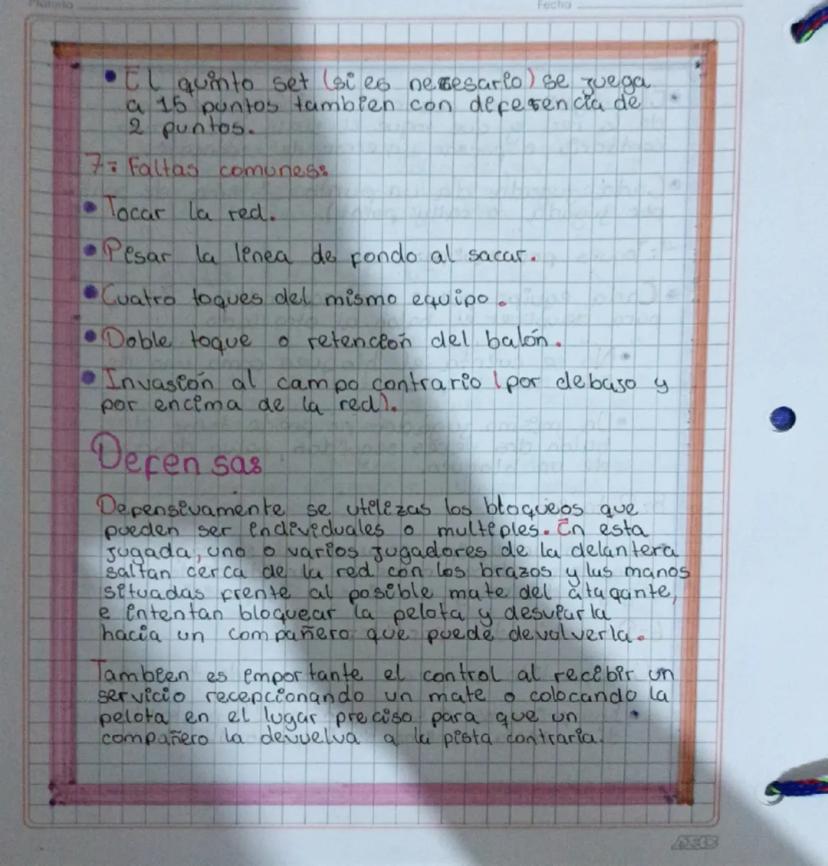 Materia
Fecha
• El quinto set (si es necesario) se juega
a 15 puntos tambien con deferencia de
2 puntos.
7= Faltas comunes:
• Tocar la red.
• Pisar la linea de fondo al sacar.
• Cuatro toques del mismo equipo.
• Doble toque o retención del balón.
• Invasión al campo contrario (por debaso y
por encima de la red).
Defensas
Defensivamente se utilizas los bloqueos que
pueden ser individuales o multiples. En esta
jugada, uno o varios jugadores de la delantera
saltan cerca de la red con los brazos y las manos
situadas frente al posible mate del atacante,
e intentan bloquear la pelota y desviarla
hacia un compañero que puede devolverla.
Tambien es importante el control al recibir un
servicio recepcionando un mate o colocando la
pelota en el lugar preciso para que un
compañero la devuelva a la pista contraria.